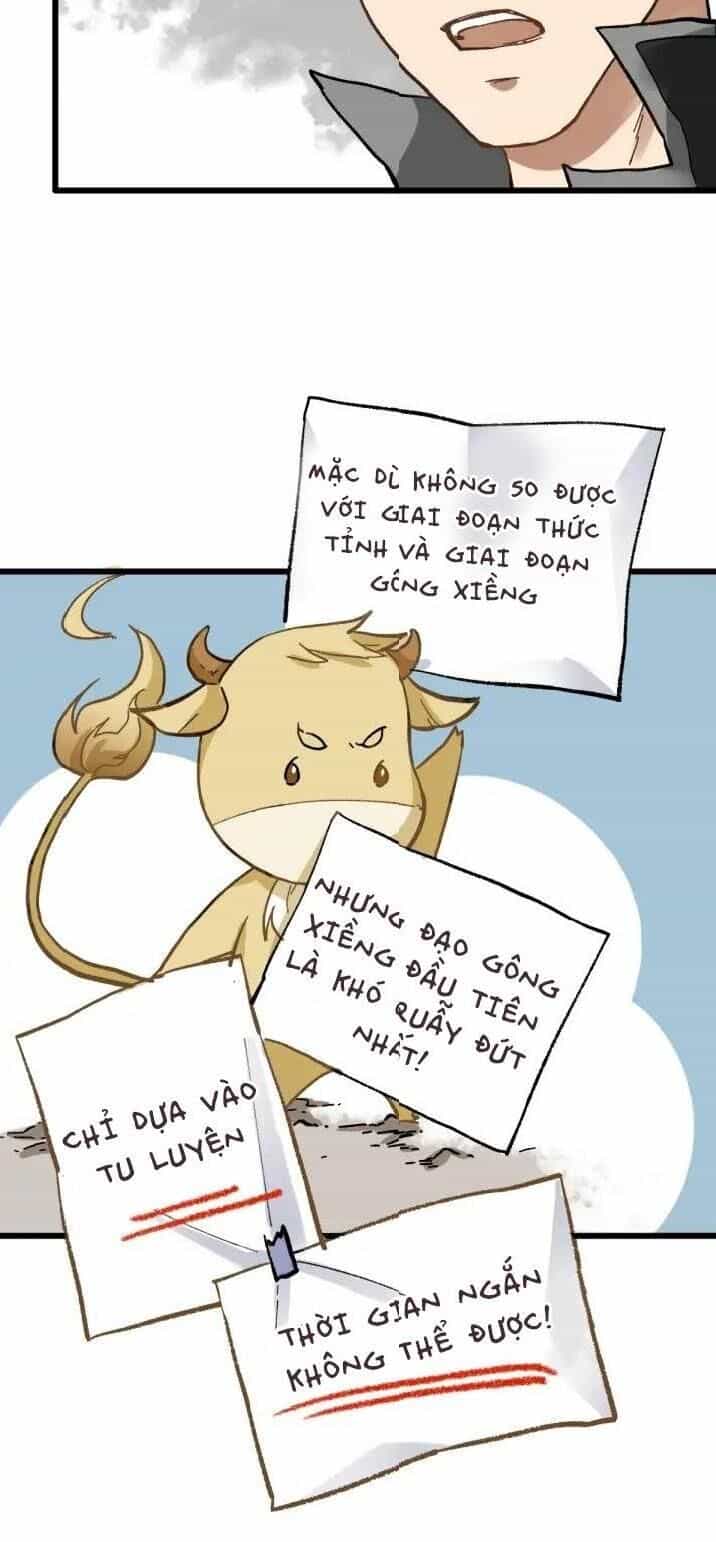 MẶC DÙ KHÔNG SO ĐƯỢC
VỚI GIAI ĐOẠN THỨC
TỈNH VÀ GIAI ĐOẠN
GÔNG XIỀNG
NHƯNG ĐẠO GÔNG
XIỀNG ĐẦU TIÊN
LÀ KHÓ QUẪY ĐỨT
NHẤT!
CHỈ DỰA VÀO
TU LUYỆN
THỜI GIAN NGẮN
KHÔNG THỂ ĐƯỢC!